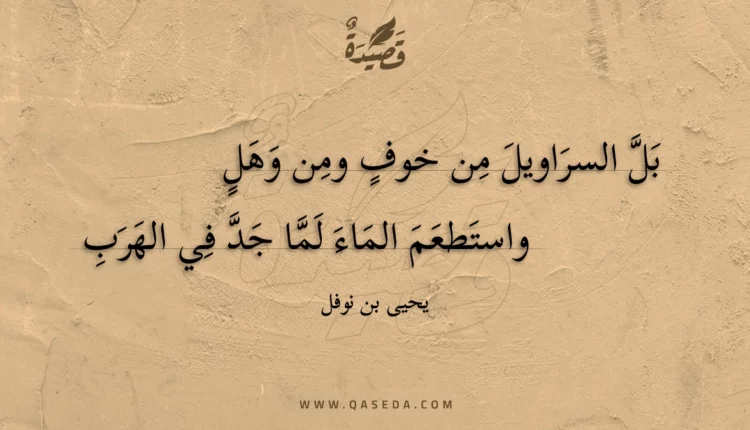 قَصِيْدَةٌ
بَلَّ السرَاويلَ مِن خوفٍ ومِن وَهَلٍ
واستَطعَمَ المَاءَ لَمَّا جَدَّ فِي الهَرَبِ
يحيى بن نوفل
WWW.QASEDA.COM